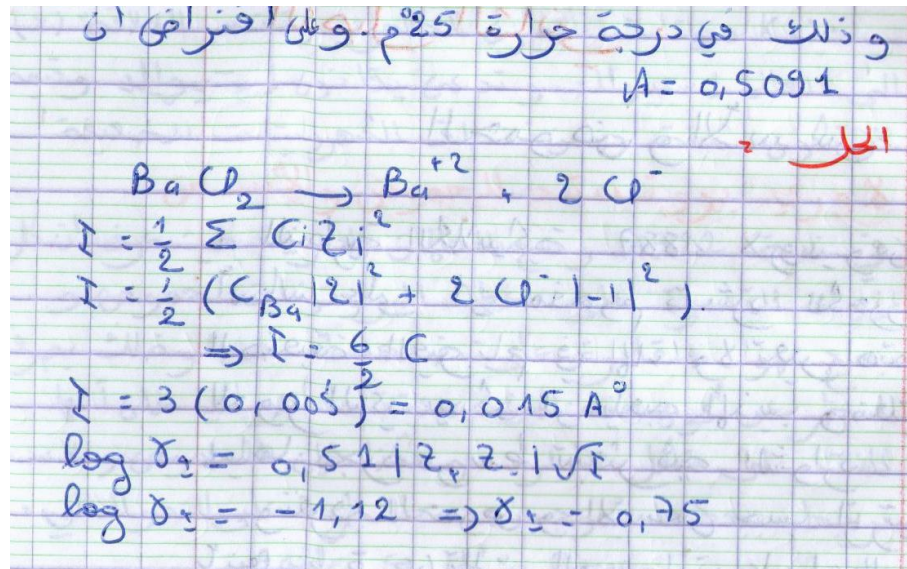 و ذلك في درجة حرارة 25°م. وعلى افتراض ان
A = 0,5091
الحل :
BaCl₂ → Ba⁺² + 2 Cl⁻
I = 1/2 Σ CiZi²
I = 1/2 (C_Ba |2|² + 2 Cl⁻ |-1|²).
⇒ I = 6/2 C
I = 3 (0,005) = 0,015 A°
log γ± = 0,51 | Z₊ Z₋ | √I
log γ± = -1,12 ⇒ γ± = 0,75